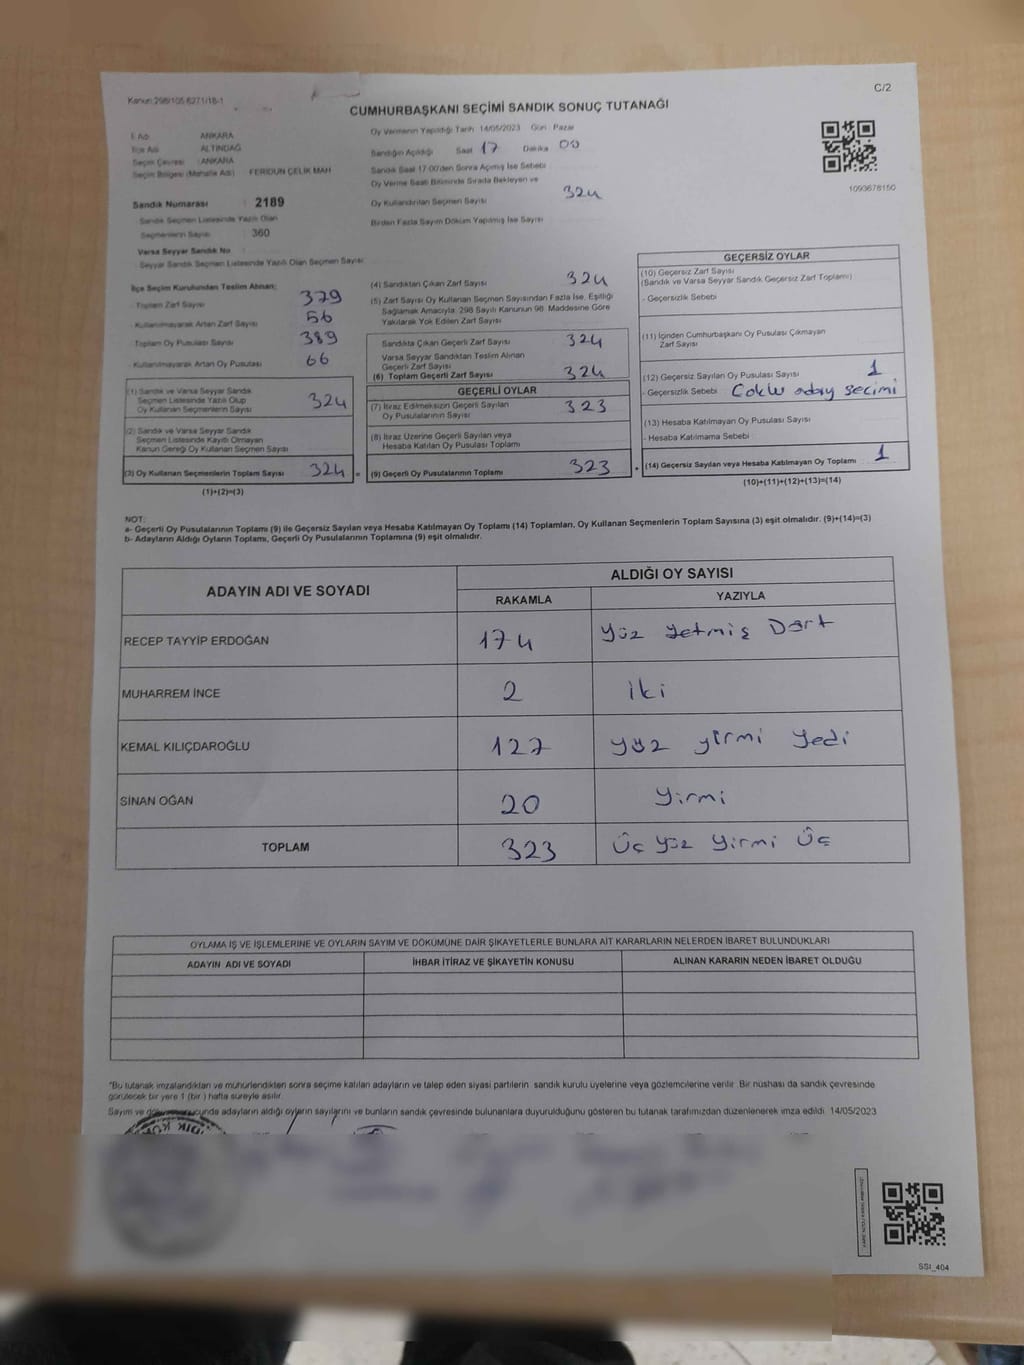 Kanun:298/105 6271/18-1
C/2
CUMHURBAŞKANI SEÇİMİ SANDIK SONUÇ TUTANAĞI
İl Adı ANKARA
İlçe Adı ALTINDAĞ
Seçim Çevresi : ANKARA
Seçim Bölgesi (Mahalle Adı) FERİDUN ÇELİK MAH
Sandık Numarası : 2189
Sandık Seçmen Listesinde Yazılı Olan
Seçmenlerin Sayısı 360
Varsa Seyyar Sandık No
Seyyar Sandık Seçmen Listesinde Yazılı Olan Seçmen Sayısı
Oy Vermenin Yapıldığı Tarih 14/05/2023 Gün : Pazar
Sandığın Açıldığı Saat 17 Dakika 00
Sandık Saat 17:00'den Sonra Açılmış İse Sebebi
Oy Verme Saati Bitiminde Sırada Bekleyen ve
Oy Kullandırılan Seçmen Sayısı 324
Birden Fazla Sayım Döküm Yapılmış İse Sayısı
1093678150
İlçe Seçim Kurulundan Teslim Alınan;
- Toplam Zarf Sayısı 379
- Kullanılmayarak Artan Zarf Sayısı 56
Toplam Oy Pusulası Sayısı 389
- Kullanılmayarak Artan Oy Pusulası 66
(1) Sandık ve Varsa Seyyar Sandık
Seçmen Listesinde Yazılı Olup
Oy Kullanan Seçmenlerin Sayısı 324
(2) Sandık ve Varsa Seyyar Sandık
Seçmen Listesinde Kayıtlı Olmayan
Kanun Gereği Oy Kullanan Seçmen Sayısı
(3) Oy Kullanan Seçmenlerin Toplam Sayısı 324 =
(1)+(2)=(3)
(4) Sandıktan Çıkan Zarf Sayısı 324
(5) Zarf Sayısı Oy Kullanan Seçmen Sayısından Fazla İse, Eşitliği
Sağlamak Amacıyla; 298 Sayılı Kanunun 98. Maddesine Göre
Yakılarak Yok Edilen Zarf Sayısı
Sandıkta Çıkan Geçerli Zarf Sayısı 324
Varsa Seyyar Sandıktan Teslim Alınan
Geçerli Zarf Sayısı
(6) Toplam Geçerli Zarf Sayısı 324
GEÇERLİ OYLAR
(7) İtiraz Edilmeksizin Geçerli Sayılan
Oy Pusulalarının Sayısı 323
(8) İtiraz Üzerine Geçerli Sayılan veya
Hesaba Katılan Oy Pusulası Toplamı
(9) Geçerli Oy Pusulalarının Toplamı 323 +
GEÇERSİZ OYLAR
(10) Geçersiz Zarf Sayısı
(Sandık ve Varsa Seyyar Sandık Geçersiz Zarf Toplamı)
- Geçersizlik Sebebi
(11) İçinden Cumhurbaşkanı Oy Pusulası Çıkmayan
Zarf Sayısı
(12) Geçersiz Sayılan Oy Pusulası Sayısı 1
- Geçersizlik Sebebi Coklu aday secimi
(13) Hesaba Katılmayan Oy Pusulası Sayısı
- Hesaba Katılmama Sebebi
(14) Geçersiz Sayılan veya Hesaba Katılmayan Oy Toplamı 1
(10)+(11)+(12)+(13)=(14)
NOT:
a- Geçerli Oy Pusulalarının Toplamı (9) ile Geçersiz Sayılan veya Hesaba Katılmayan Oy Toplamı (14) Toplamları, Oy Kullanan Seçmenlerin Toplam Sayısına (3) eşit olmalıdır. (9)+(14)=(3)
b- Adayların Aldığı Oyların Toplamı, Geçerli Oy Pusulalarının Toplamına (9) eşit olmalıdır.
ADAYIN ADI VE SOYADI
ALDIĞI OY SAYISI
RAKAMLA YAZIYLA
RECEP TAYYİP ERDOĞAN 174 Yüz Yetmiş Dört
MUHARREM İNCE 2 İki
KEMAL KILIÇDAROĞLU 127 Yüz yirmi Yedi
SİNAN OĞAN 20 Yirmi
TOPLAM 323 Üç Yüz Yirmi Üç
OYLAMA İŞ VE İŞLEMLERİNE VE OYLARIN SAYIM VE DÖKÜMÜNE DAİR ŞİKAYETLERLE BUNLARA AİT KARARLARIN NELERDEN İBARET BULUNDUKLARI
ADAYIN ADI VE SOYADI İHBAR İTİRAZ VE ŞİKAYETİN KONUSU ALINAN KARARIN NEDEN İBARET OLDUĞU
*Bu tutanak imzalandıktan ve mühürlendikten sonra seçime katılan adayların ve talep eden siyasi partilerin sandık kurulu üyelerine veya gözlemcilerine verilir. Bir nüshası da sandık çevresinde
görülecek bir yere 1 (bir ) hafta süreyle asılır.
Sayım ve sonucunda adayların aldığı oyların sayılarını ve bunların sandık çevresinde bulunanlara duyurulduğunu gösteren bu tutanak tarafımızdan düzenlenerek imza edildi. 14/05/2023
SSI_404